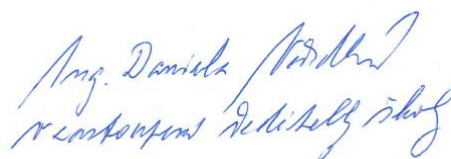 Ing. Daniela
v zastoupení ředitelky školy